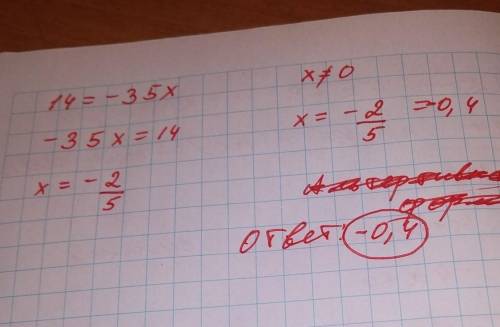 14 = -35x
-35x = 14
x = -2/5
x ≠ 0
x = -2/5 = -0,4
Ответ: -0,4